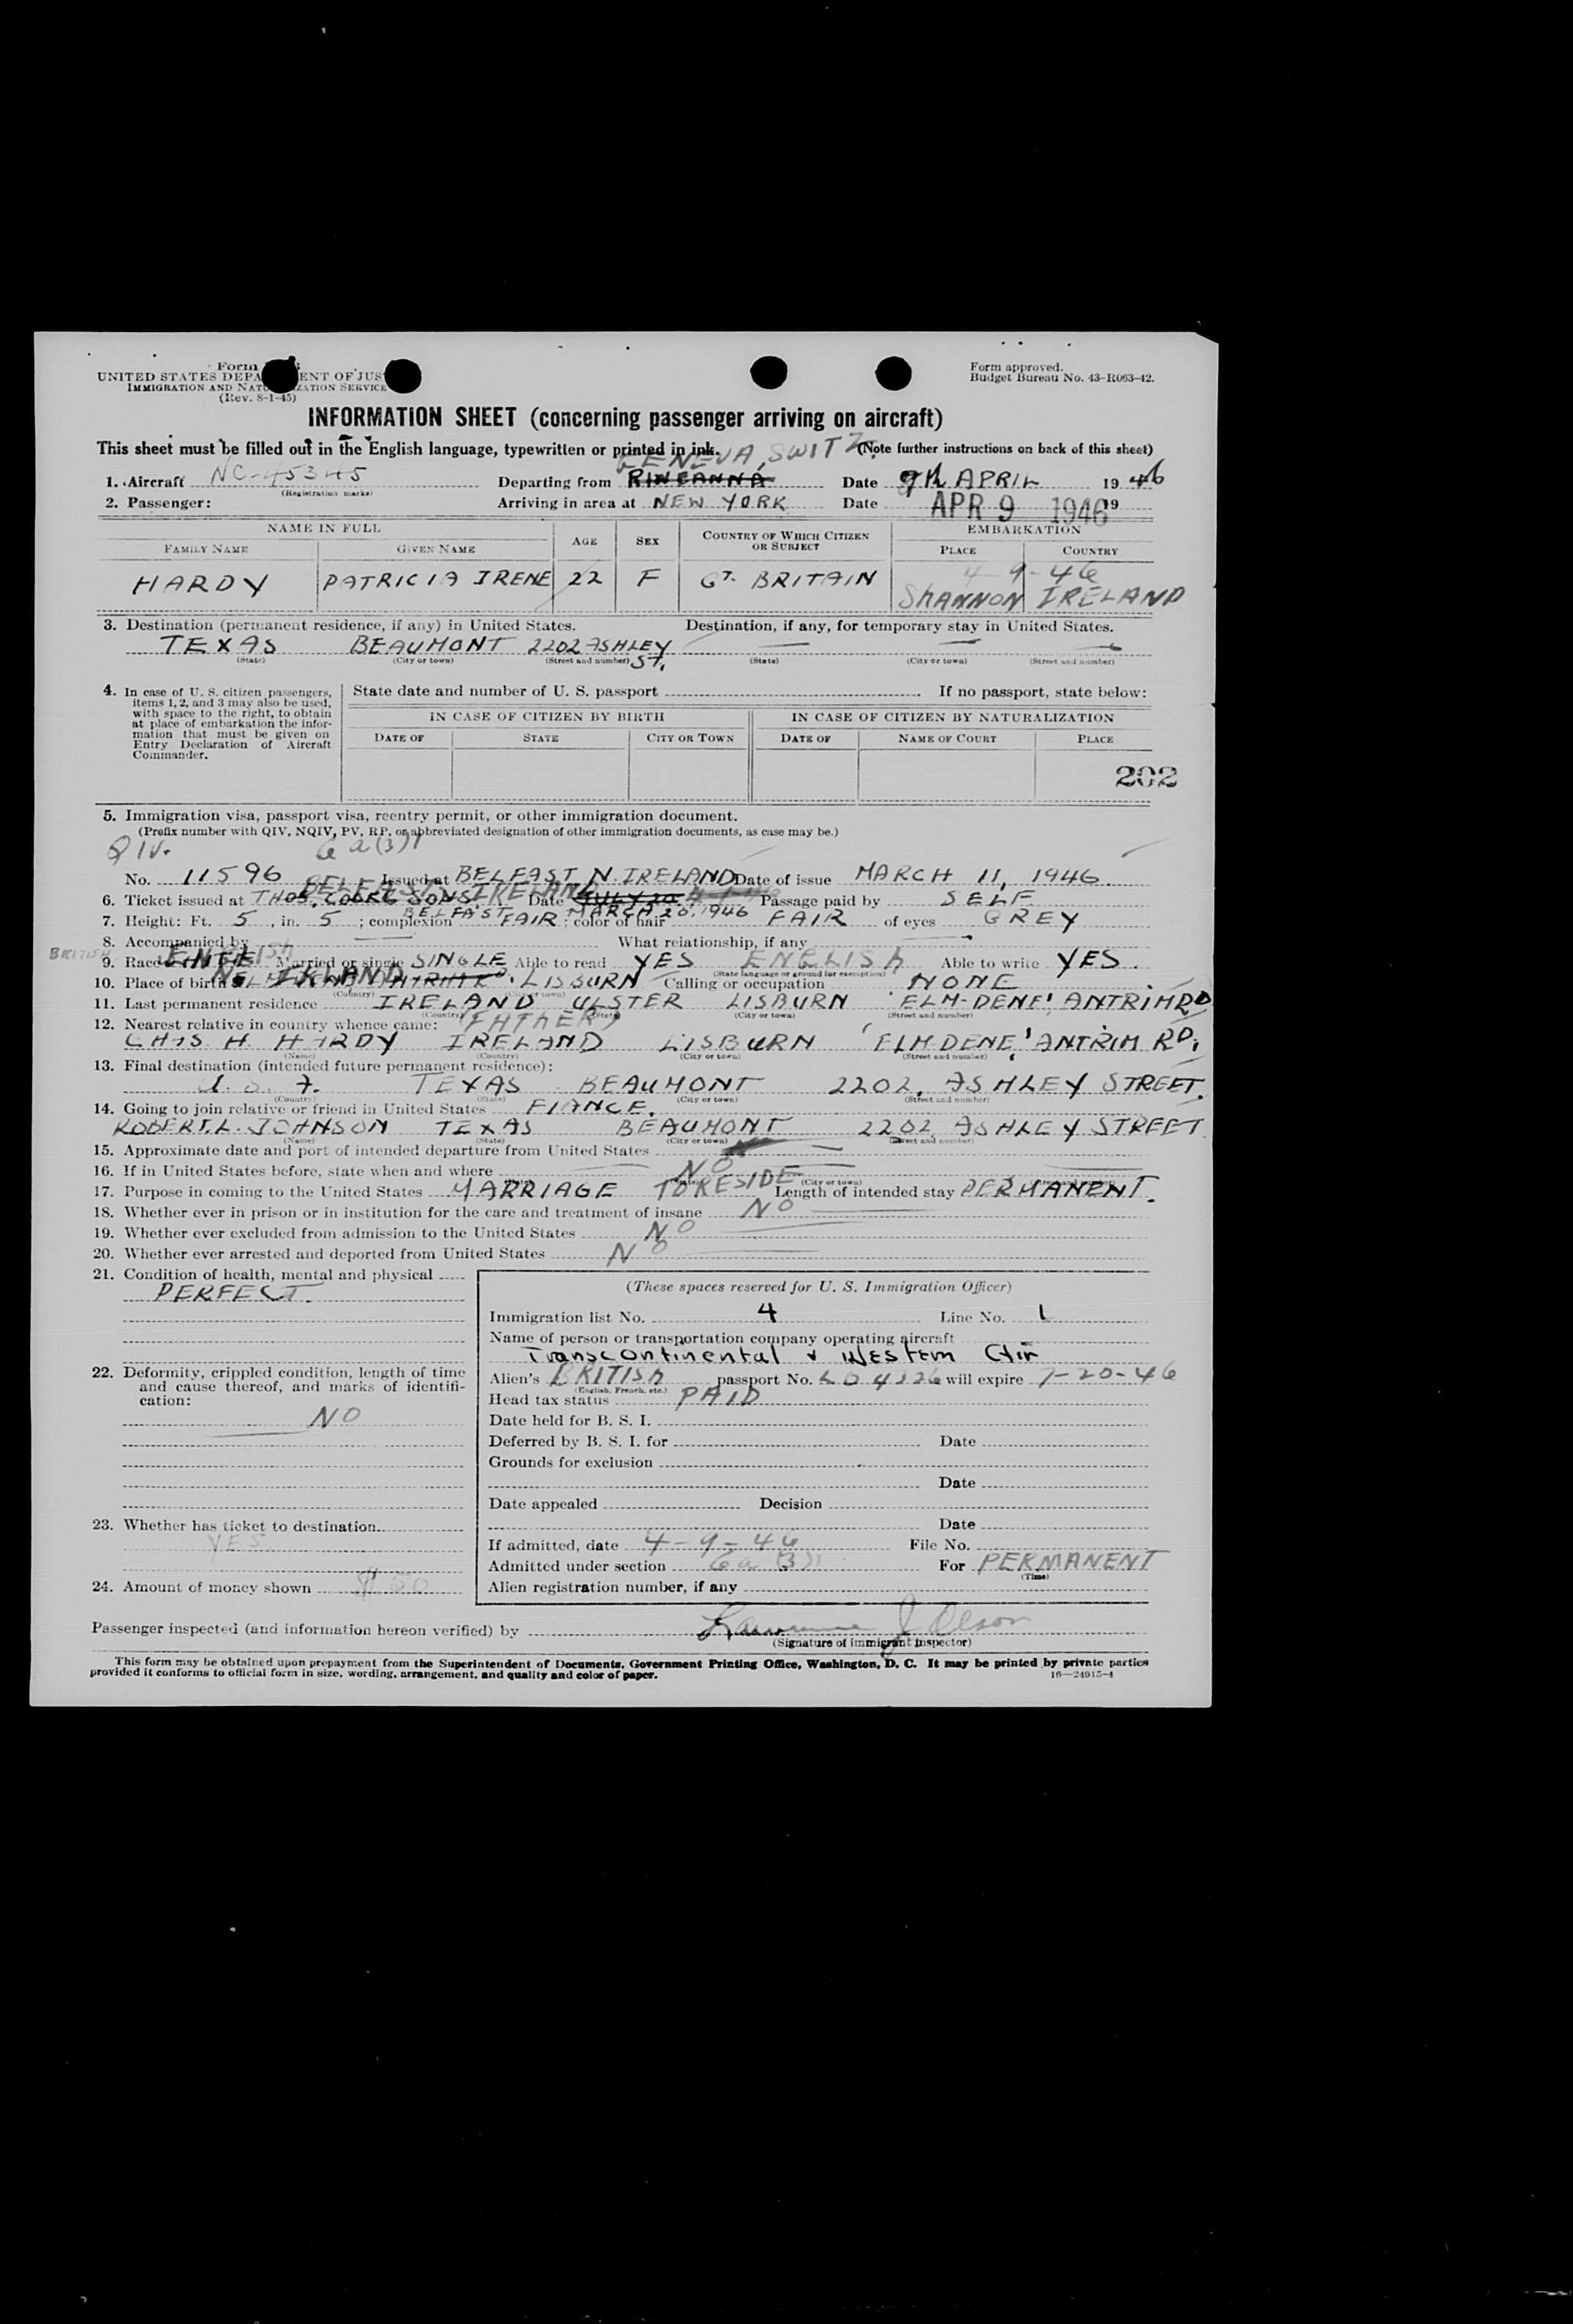 Form
UNITED STATES DEPA ENT OF JUS
IMMIGRATION AND NAT ZATION SERVICE
(Rev. 8-1-45)
Form approved.
Budget Bureau No. 43-R063-42.
INFORMATION SHEET (concerning passenger arriving on aircraft)
This sheet must be filled out in the English language, typewritten or printed in ink. (Note further instructions on back of this sheet)
GENEVA, SWITZ.
1. Aircraft NC-45345 Departing from RINEANNA Date 9th APRIL 1946
(Registration marks)
2. Passenger: Arriving in area at NEW YORK Date APR 9 1946 19
NAME IN FULL AGE SEX COUNTRY OF WHICH CITIZEN OR SUBJECT EMBARKATION
FAMILY NAME GIVEN NAME PLACE COUNTRY
4-9-46
HARDY PATRICIA IRENE 22 F GT. BRITAIN SHANNON IRELAND
3. Destination (permanent residence, if any) in United States. Destination, if any, for temporary stay in United States.
TEXAS BEAUMONT 2202 ASHLEY ST. — — —
(State) (City or town) (Street and number) (State) (City or town) (Street and number)
4. In case of U. S. citizen passengers, items 1, 2, and 3 may also be used, with space to the right, to obtain at place of embarkation the information that must be given on Entry Declaration of Aircraft Commander.
State date and number of U. S. passport If no passport, state below:
IN CASE OF CITIZEN BY BIRTH IN CASE OF CITIZEN BY NATURALIZATION
DATE OF STATE CITY OR TOWN DATE OF NAME OF COURT PLACE
202
5. Immigration visa, passport visa, reentry permit, or other immigration document.
(Prefix number with QIV, NQIV, PV, RP, or abbreviated designation of other immigration documents, as case may be.)
QIV. 6a(3)
No. 11596 Issued at BELFAST N. IRELAND Date of issue MARCH 11, 1946
BELFAST IRELAND
6. Ticket issued at THOS. COOK & SONS Date JULY 20 Passage paid by SELF
BELFAST MARCH 20, 1946
7. Height: Ft. 5, in. 5; complexion FAIR; color of hair FAIR of eyes GREY
8. Accompanied by — What relationship, if any —
BRITISH
9. Race ENGLISH Married or single SINGLE Able to read YES ENGLISH Able to write YES.
(State language or ground for exemption)
10. Place of birth N. IRELAND LISBURN Calling or occupation NONE
(Country)
11. Last permanent residence IRELAND ULSTER LISBURN 'ELM-DENE' ANTRIM RD
(Country) (State) (City or town) (Street and number)
12. Nearest relative in country whence came: (FATHER)
CHAS H HARDY IRELAND LISBURN 'ELM DENE' ANTRIM RD.
(Name) (Country) (City or town) (Street and number)
13. Final destination (intended future permanent residence):
U. S. A. TEXAS BEAUMONT 2202, ASHLEY STREET.
(Country) (State) (City or town) (Street and number)
14. Going to join relative or friend in United States FIANCE.
ROBERT. L. JOHNSON TEXAS BEAUMONT 2202 ASHLEY STREET.
(Name) (State) (City or town) (Street and number)
15. Approximate date and port of intended departure from United States —
16. If in United States before, state when and where NO
(City or town)
17. Purpose in coming to the United States MARRIAGE TO RESIDE Length of intended stay PERMANENT.
18. Whether ever in prison or in institution for the care and treatment of insane NO
19. Whether ever excluded from admission to the United States NO
20. Whether ever arrested and deported from United States NO
21. Condition of health, mental and physical
PERFECT.
22. Deformity, crippled condition, length of time and cause thereof, and marks of identification:
NO
23. Whether has ticket to destination
YES
24. Amount of money shown $50
(These spaces reserved for U. S. Immigration Officer)
Immigration list No. 4 Line No. 1
Name of person or transportation company operating aircraft
Transcontinental & Western Air
Alien's BRITISH passport No. LO 4326 will expire 7-20-46
(English, French, etc.)
Head tax status PAID
Date held for B. S. I.
Deferred by B. S. I. for Date
Grounds for exclusion
Date
Date appealed Decision
Date
If admitted, date 4-9-46 File No.
Admitted under section 6a(3) For PERMANENT
(Time)
Alien registration number, if any
Passenger inspected (and information hereon verified) by Lawrence J Olson
(Signature of immigrant inspector)
This form may be obtained upon prepayment from the Superintendent of Documents, Government Printing Office, Washington, D. C. It may be printed by private parties
provided it conforms to official form in size, wording, arrangement, and quality and color of paper. 16—24915-4